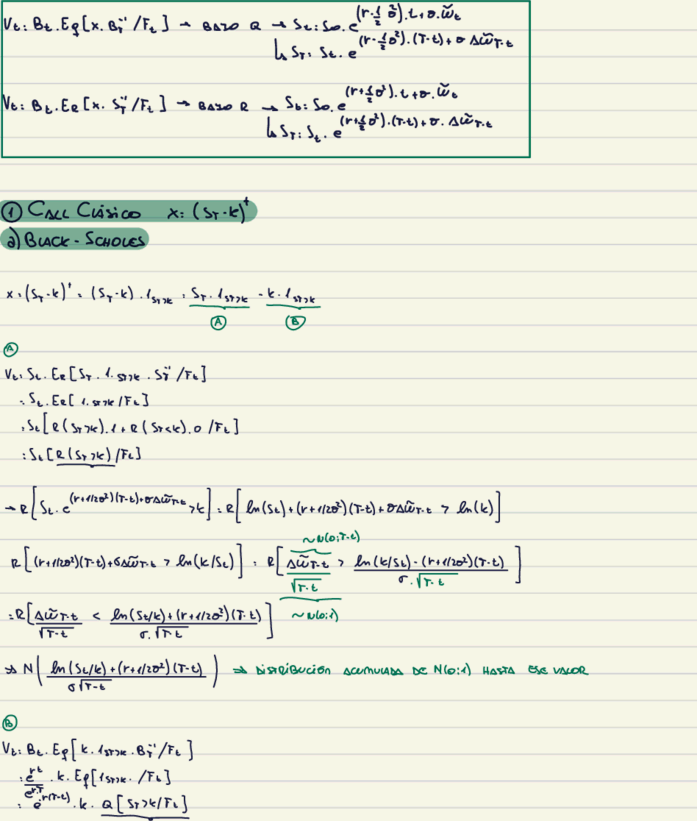 Vt: Bt. EQ [x. BT⁻¹/Ft] → BAJO Q → St: S0. e^(r-½σ²).t+σ.W̃t
↳ ST: St. e^(r-½σ²).(T-t)+σ ΔW̃T-t
Vt: Bt. ER [x. ST⁻¹/Ft] → BAJO R → St: S0. e^(r+½σ²).t+σ.W̃t
↳ ST: St. e^(r+½σ²).(T-t)+σ. ΔW̃T-t
① CALL CLÁSICO x: (ST-K)⁺
a) BLACK-SCHOLES
x: (ST-K)⁺ = (ST-K). 1ST>K = ST. 1ST>K - K. 1ST>K
Ⓐ Ⓑ
Ⓐ
Vt: St. ER [ST. 1.ST>K. ST⁻¹/Ft]
: St. ER [1.ST>K/Ft]
: St [R(ST>K).1+R(ST<K).0/Ft]
: St [R(ST>K)/Ft]
→ R[St. e^(r+1/2σ²)(T-t)+σΔW̃T-t >K] : R[ln(St)+(r+1/2σ²)(T-t)+σΔW̃T-t > ln(K)]
~N(0;T-t)
R[(r+1/2σ²)(T-t)+σΔW̃T-t > ln(K/St)] : R[ΔW̃T-t/√T-t > ln(K/St)-(r+1/2σ²)(T-t)/σ.√T-t]
: R[ΔW̃T-t/√T-t < ln(St/K)+(r+1/2σ²)(T-t)/σ.√T-t] ~N(0;1)
⇒ N(ln(St/K)+(r+1/2σ²)(T-t)/σ√T-t) ⇒ DISTRIBUCIÓN ACUMULADA DE N(0;1) HASTA ESE VALOR
Ⓑ
Vt: Bt. EQ [K. 1ST>K. BT⁻¹/Ft]
: e^rt/e^rT. K. EQ [1ST>K. /Ft]
: e^-r(T-t). K. Q[ST>K/Ft]